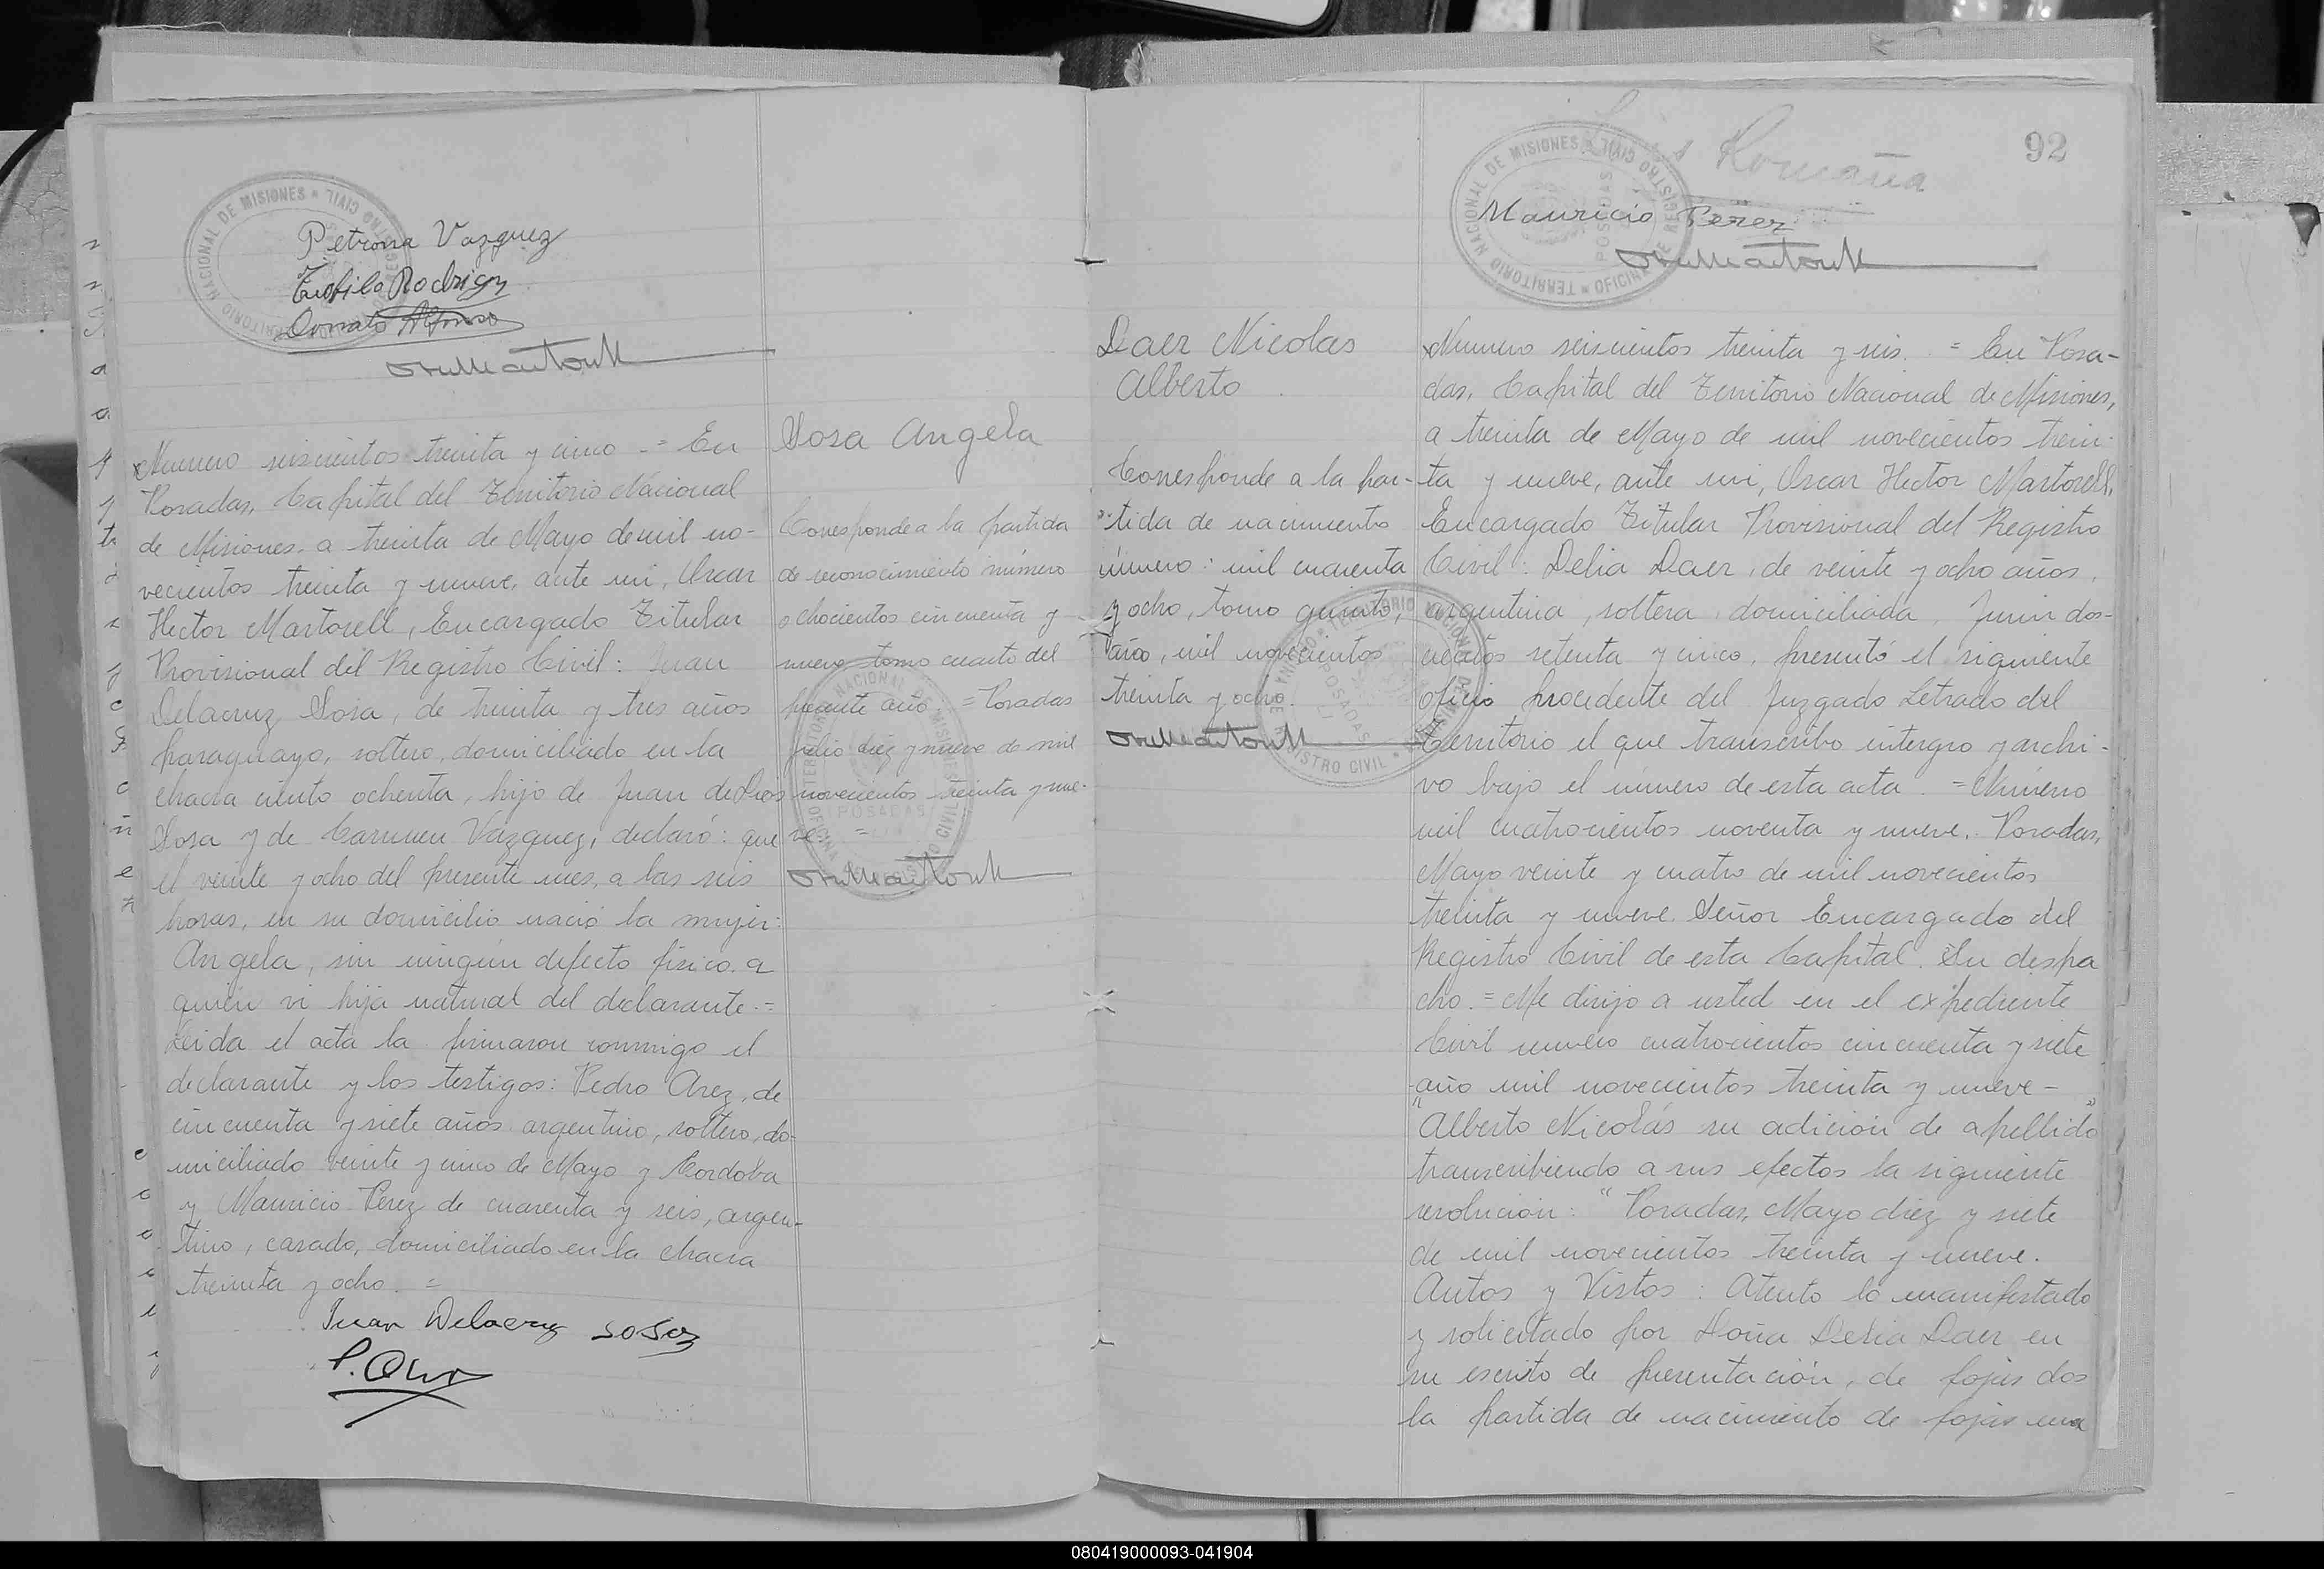 TERRITORIO NACIONAL DE MISIONES * OFICINA DE REGISTRO CIVIL *
Petrona Vazquez
Teofilo Rodrigez
Donato Alfonso
Numero seiscientos treinta y cinco = En
Posadas, Capital del Territorio Nacional
de Misiones a treinta de Mayo de mil no-
vecientos treinta y nueve, ante mi, Oscar
Hector Martorell, Encargado Titular
Provisional del Registro Civil: Juan
Delacruz Sosa, de treinta y tres años
paraguayo, soltero, domiciliado en la
chacra ciento ochenta, hijo de Juan de Dios
Sosa y de Carmen Vázquez, declaró: que
el veinte y ocho del presente mes, a las seis
horas, en su domicilio nació la mujer:
Angela, sin ningún defecto físico a
quien vi hija natural del declarante.=
Leida el acta la firmaron conmigo el
declarante y los testigos: Pedro Arez, de
cincuenta y siete años argentino, soltero, do-
miciliado veinte y cinco de Mayo y Cordoba
y Mauricio Pérez de cuarenta y seis, argen-
tino, casado, domiciliado en la chacra
treinta y ocho. =
Juan Delacruz sosa
Sosa Angela
Corresponde a la partida
de reconocimiento número
ochocientos cincuenta y
nueve tomo cuarto del
presente año. = Posadas
julio diez y nueve de mil
novecientos treinta y nue-
ve =
92
Romaña
TERRITORIO NACIONAL DE MISIONES * OFICINA DE REGISTRO CIVIL * POSADAS
Mauricio Pérez
Daer Nicolas
Alberto
Corresponde a la par-
tida de nacimiento
número: mil cuarenta
y ocho, tomo quinto,
año, mil novecientos
treinta y ocho.
Numero seiscientos treinta y seis. = En Posa-
das, Capital del Territorio Nacional de Misiones,
a treinta de Mayo de mil novecientos trein-
ta y nueve, ante mi, Oscar Hector Martorell,
Encargado Titular Provisional del Registro
Civil: Delia Daer, de veinte y ocho años,
argentina, soltera, domiciliada, Junin dos-
cientos setenta y cinco, presentó el siguiente
oficio procedente del Juzgado Letrado del
Territorio el que transcribo intergro y archi-
vo bajo el número de esta acta. = Número
mil cuatrocientos noventa y nueve. Posadas,
Mayo veinte y cuatro de mil novecientos
treinta y nueve. Señor Encargado del
Registro Civil de esta Capital. Su despa
cho. = Me dirijo a usted en el expediente
Civil numero cuatrocientos cincuenta y siete
año mil novecientos treinta y nueve -
"Alberto Nicolás su adición de apellido"
transcribiendo a sus efectos la siguiente
resolución: "Posadas, Mayo diez y siete
de mil novecientos treinta y nueve.
Autos y Vistos: Atento lo manifestado
y solicitado por Doña Delia Daer en
su escrito de presentación, de fojas dos
la partida de nacimiento de fojas una
080419000093-041904